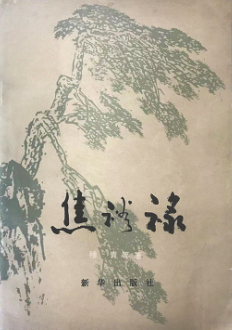 焦裕禄
新华出版社